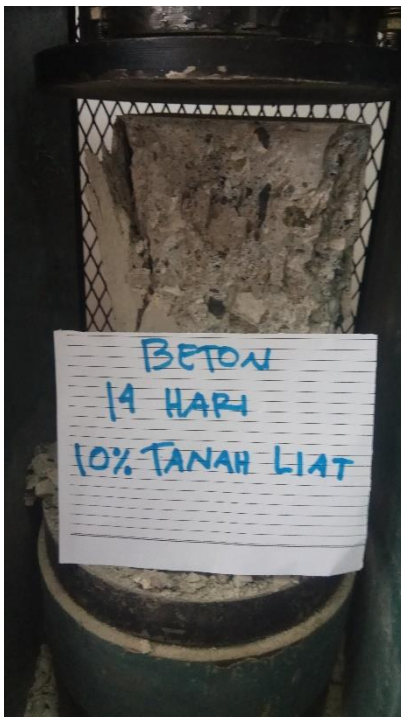 BETON
14 HARI
10% TANAH LIAT